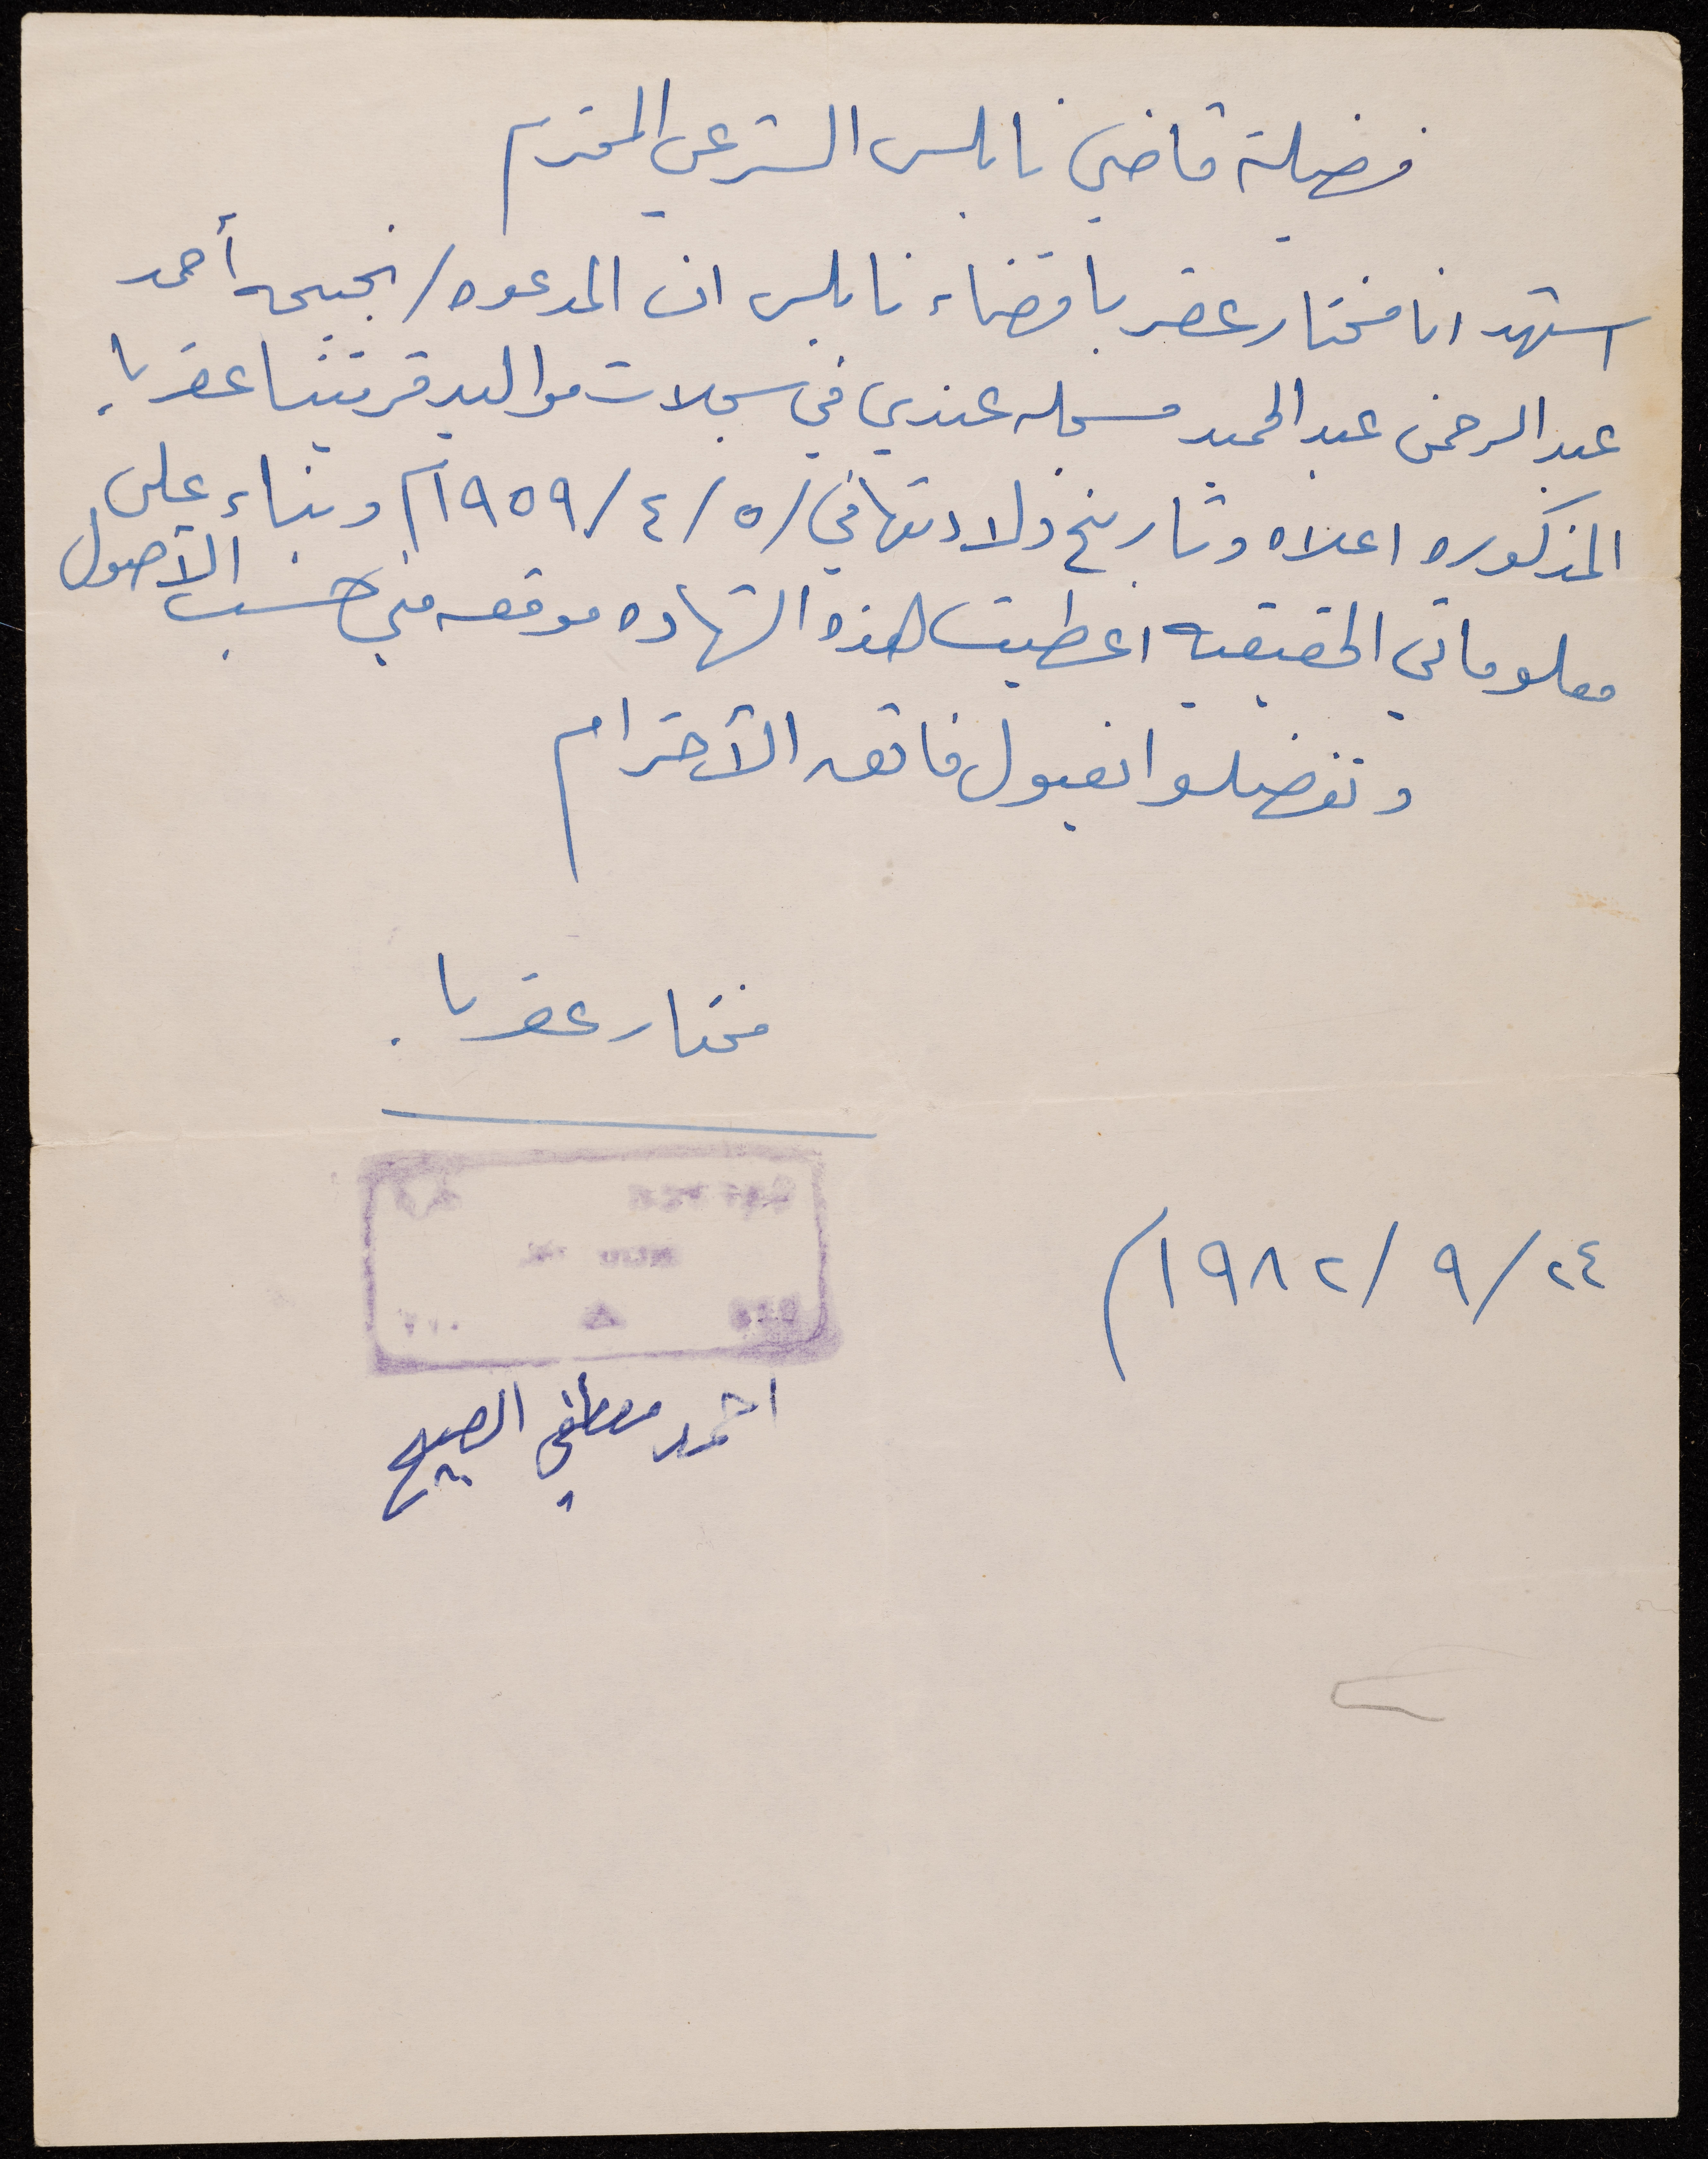 فضيلة قاضي نابلس الشرعي المحترم
اشهد انا مختار عقربا قضاء نابلس ان المدعوه / نجيحه أحمد
عبد الرحمن عبد الحميد مسجله عندي في سجلات مواليد قريتنا عقربا
المذكوره اعلاه وتاريخ ولادتها في / ٥ / ٤ / ١٩٥٩م وبناء على
معلوماتي الحقيقيه اعطيت لهذه الشهاده موقعه مني حسب الأصول
وتفضلوا بقبول فائق الأحترام
مختار عقربا
٢٤ / ٩ / ١٩٨٢م
احمد مصطفى